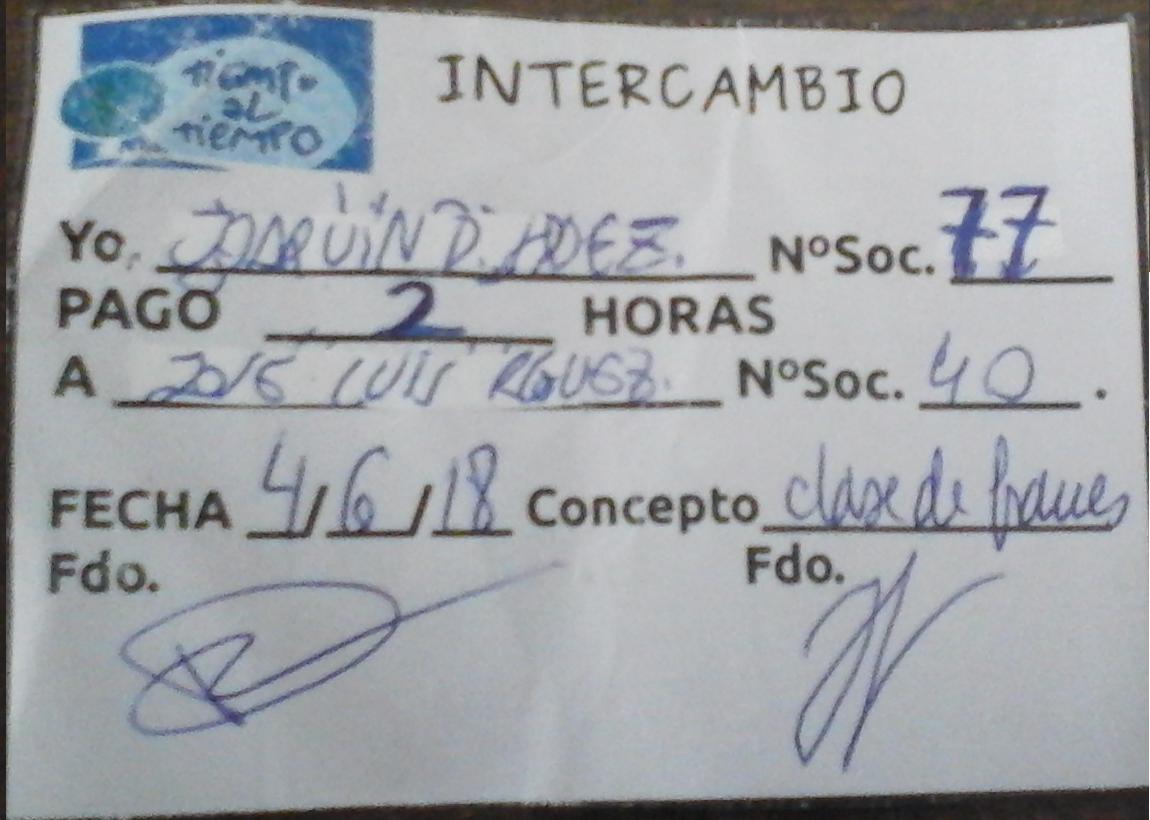 tiempo
al
tiempo
INTERCAMBIO
Yo. JOAQUÍN D. HDEZ. NºSoc. 77
PAGO 2 HORAS
A LUIS RGUEZ. NºSoc. 40.
FECHA 4/6/18 Concepto clase de frances
Fdo. Fdo.